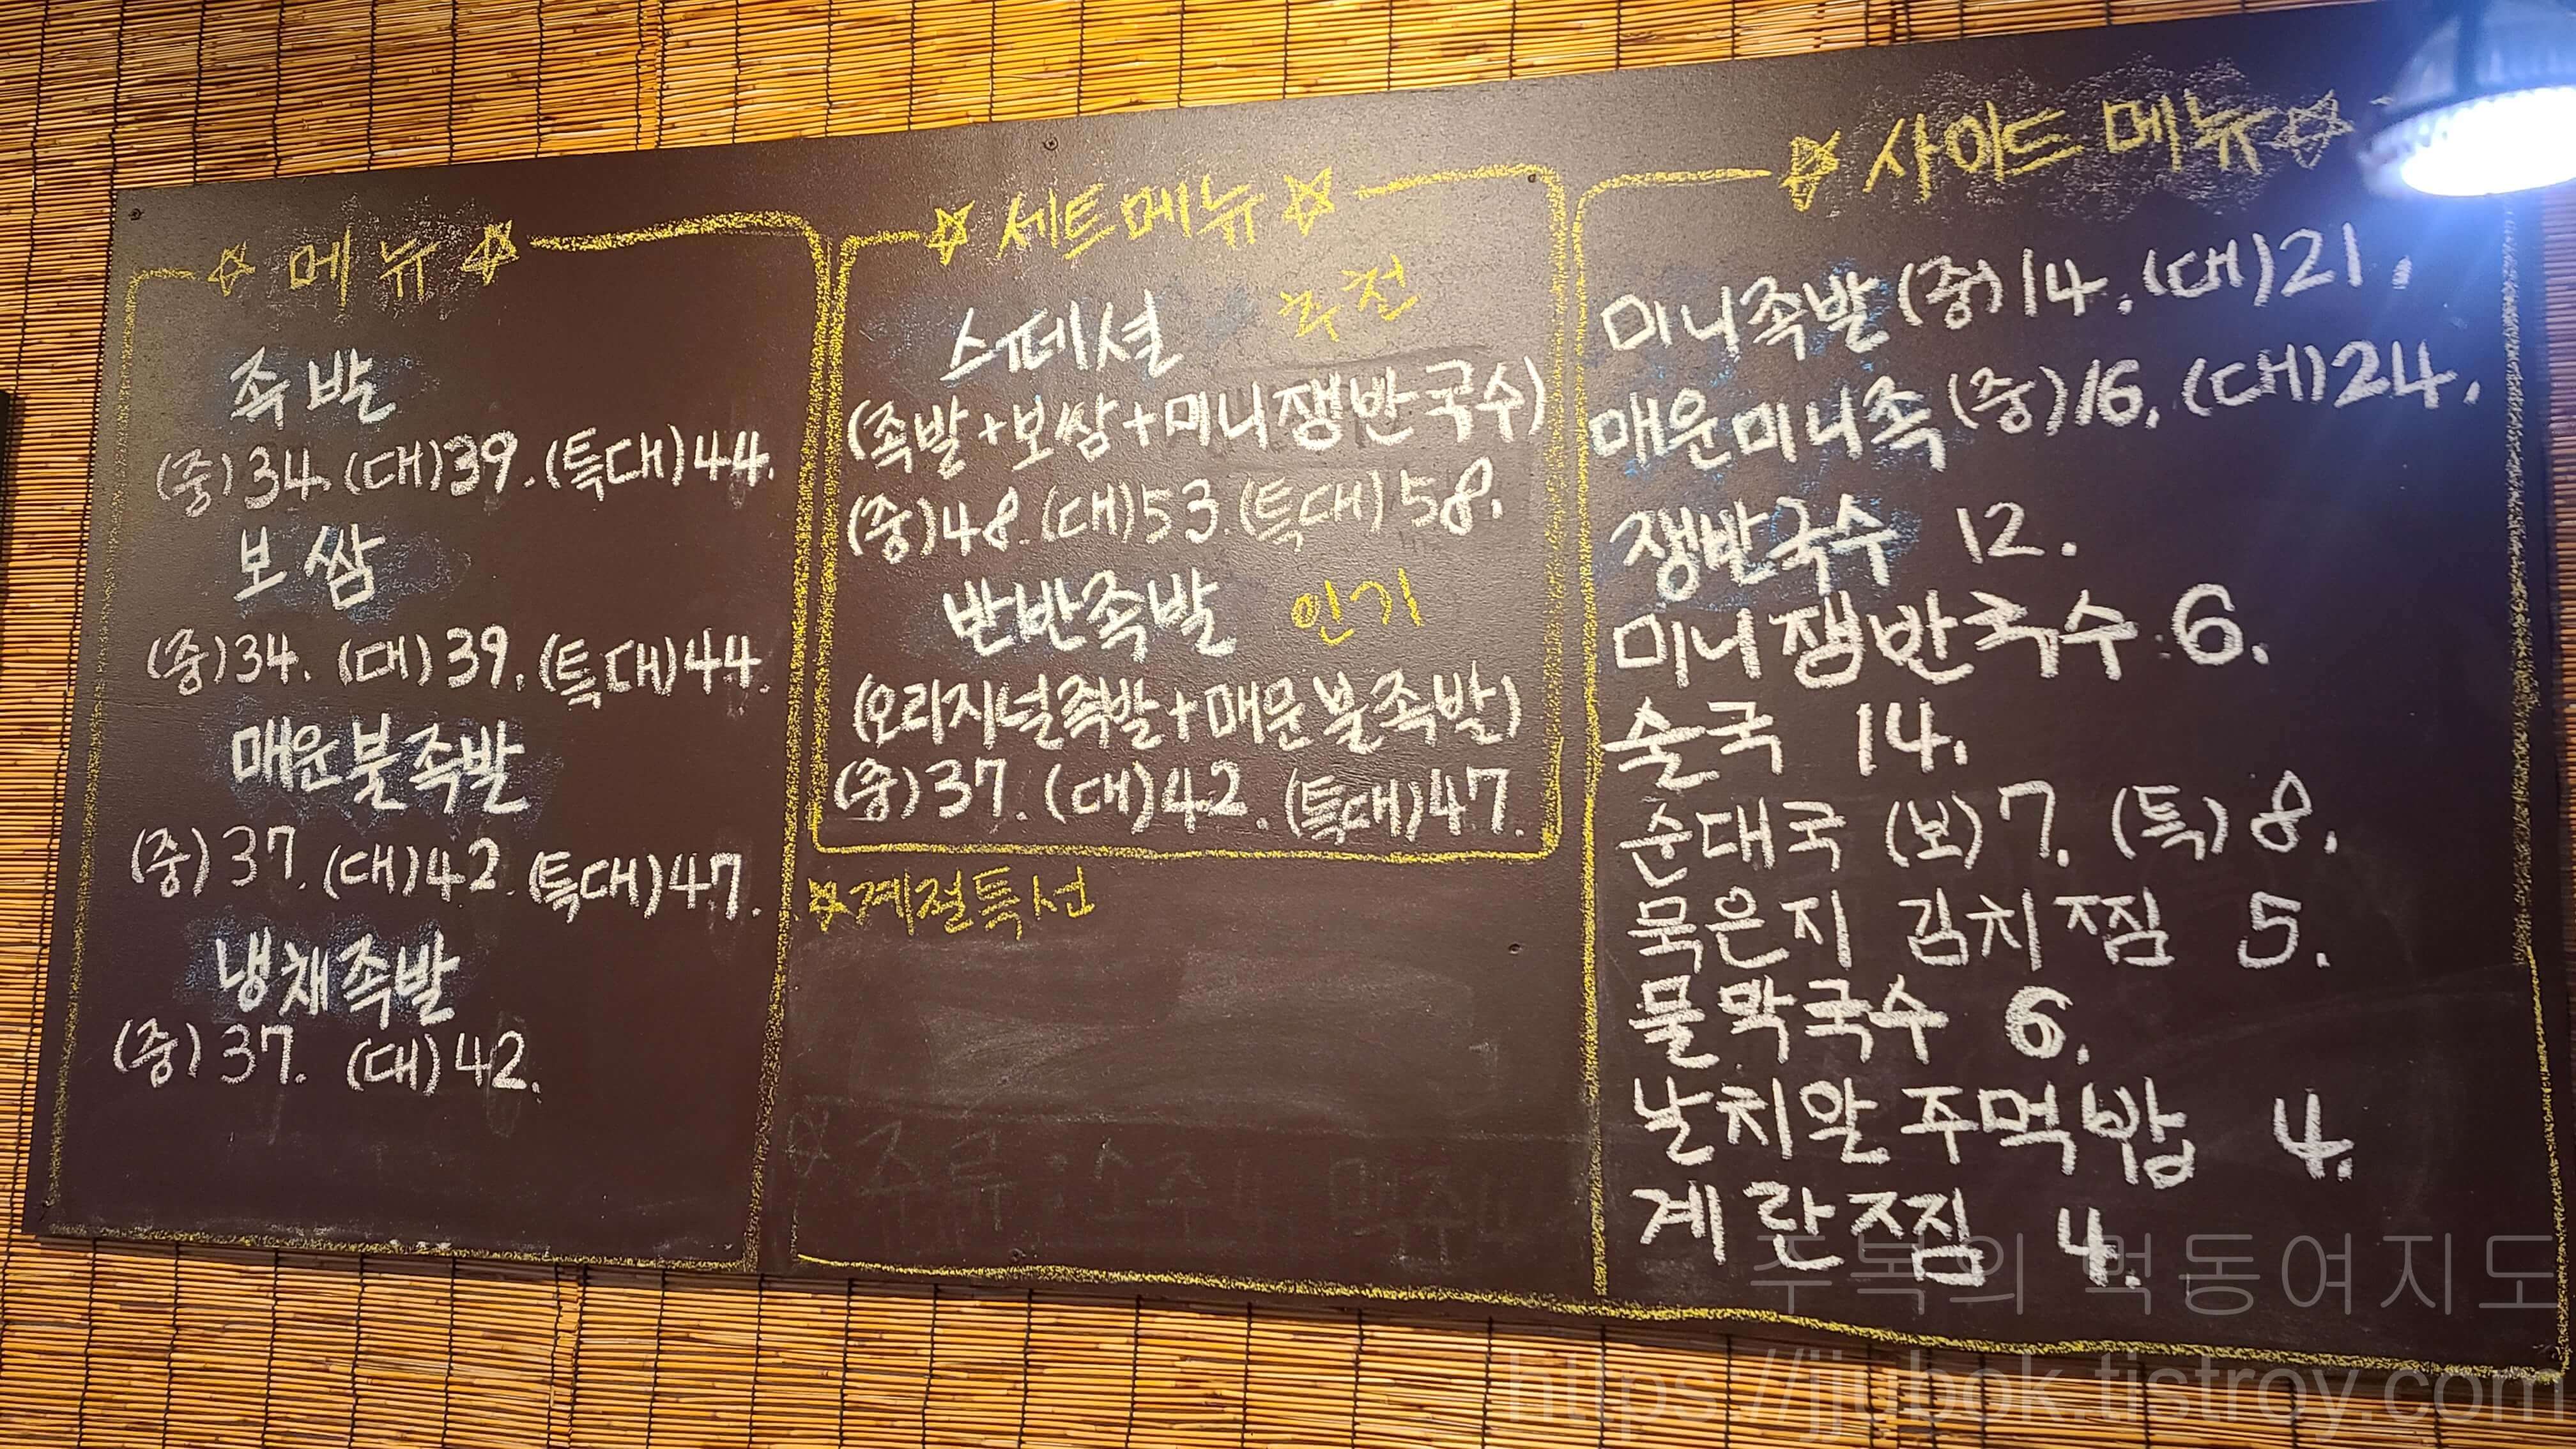 메뉴
족발
(중)34.(대)39.(특대)44.
보쌈
(중)34.(대)39.(특대)44.
매운불족발
(중)37.(대)42.(특대)47.
냉채족발
(중)37.(대)42.
세트메뉴
스페셜 추천
(족발+보쌈+미니쟁반국수)
(중)48.(대)53.(특대)58.
반반족발 인기
(오리지널족발+매운불족발)
(중)37.(대)42.(특대)47.
계절특선
사이드 메뉴
미니족발(중)14.(대)21.
매운미니족(중)16.(대)24.
쟁반국수 12.
미니쟁반국수 6.
술국 14.
순대국 (보)7.(특)8.
묵은지 김치찜 5.
물막국수 6.
날치알 주먹밥 4.
계란찜 4.
주복의 먹동여지도
https://jjubok.tistroy.com